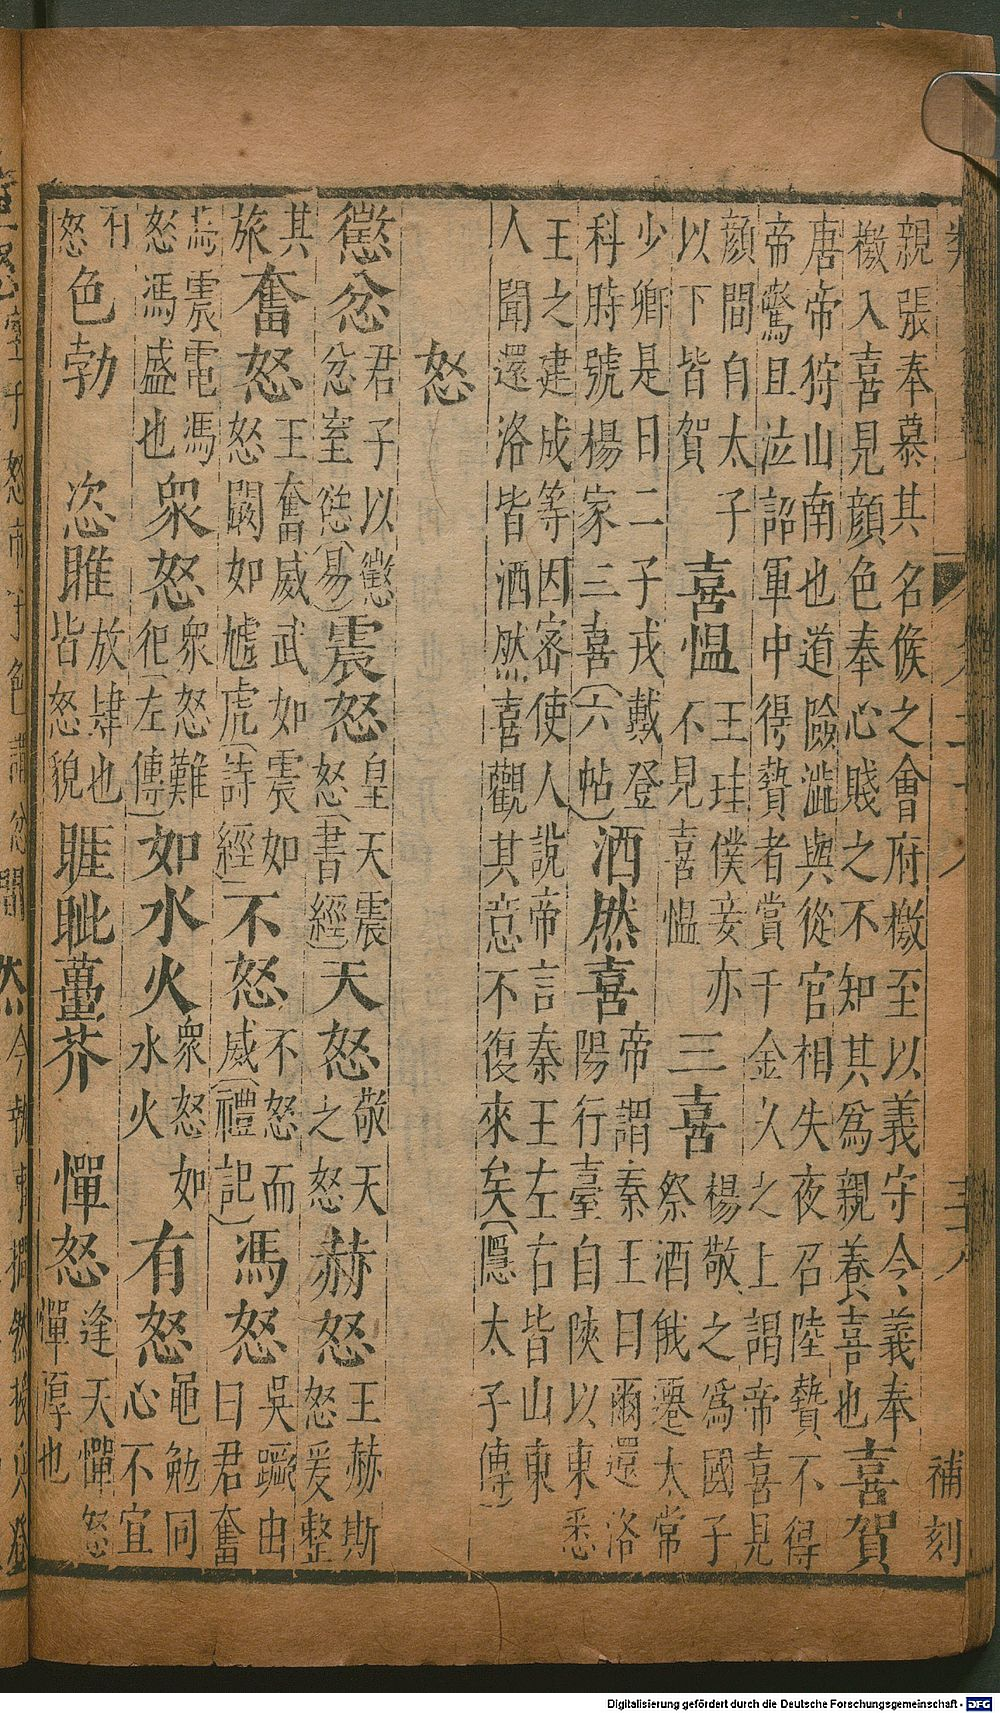 補刻
親張奉慕其名候之會府檄至以義守令義奉
檄入喜見顏色奉心賤之不知其爲親養喜也
喜賀
唐帝狩山南也道險澁與從官相失夜召陸贄不得
帝驚且泣詔軍中得贄者賞千金久之上謁帝喜見
顏間自太子
以下皆賀
喜慍
王珪僕妾亦
不見喜慍
三喜
楊敬之爲國子
祭酒俄遷太常
少卿是日二子戎戴登
科時號楊家三喜(六帖)
洒然喜
帝謂秦王曰爾還洛
陽行臺自陝以東悉
王之建成等因密使人說帝言秦王左右皆山東
人聞還洛皆洒然喜觀其意不復來矣(隱太子傳)
怒
懲忿
君子以懲
忿窒慾(易)
震怒
皇天震
怒(書經)
天怒
敬天
之怒
赫怒
王赫斯
怒爰整
其
旅
奮怒
王奮威武如震如
怒闞如虓虎(詩經)
不怒
不怒而
威(禮記)
馮怒
吳蹶由
曰君奮
焉震電馮
怒馮盛也
衆怒
衆怒難
犯(左傳)
如水火
衆怒如
水火
有怒
黽勉同
心不宜
有
怒
色勃
恣睢
放肆也
皆怒貌
睚眦薑芥
憚怒
逢天憚怒
憚厚也
Digitalisierung gefördert durch die Deutsche Forschungsgemeinschaft - DFG